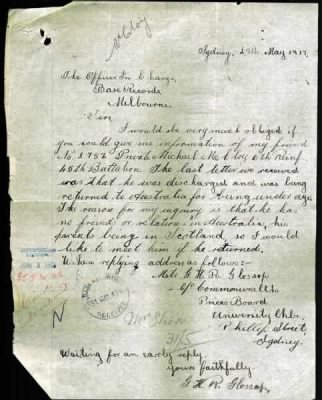 McCloy
Sydney, 29th May 1917
The Officer In Charge
Base Records
Melbourne
Sir
I would be very much obliged if
you could give me information of my friend
No 2782 Private Michael McCloy 6th Reinf.
45th Battalion. The last letter we received
was that he was discharged and was being
returned to Australia for being under age
The reason for my inquiry is that he has
no friends or relations in Australia, his
parents being in Scotland, so I would
like to meet him if he returned.
When replying address as follows:-
G. H. R. Glossop
c/o Commonwealth
Prices Board
University Chbs.
Phillip Street,
Sydney.
N
31/5
Waiting for an early reply.
Yours faithfully.
G. H. R. Glossop